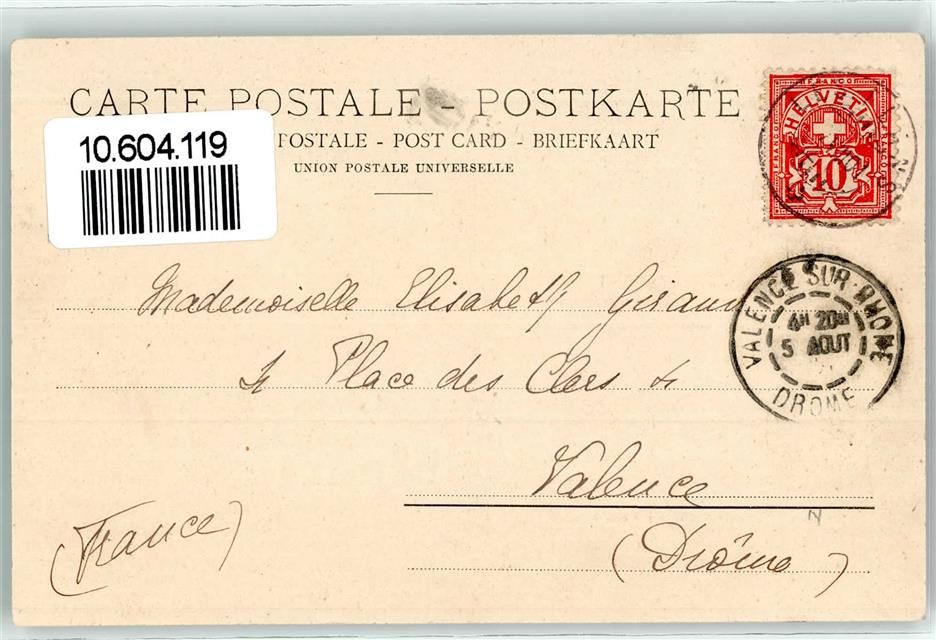 CARTE POSTALE - POSTKARTE
POSTALE - POST CARD - BRIEFKAART
UNION POSTALE UNIVERSELLE
10.604.119
FRANCO
HELVETIA
FRANCO
FRANCO
10
VALENCE SUR-RHONE
4H 20M
5 AOUT
DROME
Mademoiselle Elisabeth
4 Place des Clers 4
Valence
(France)
(Drôme)